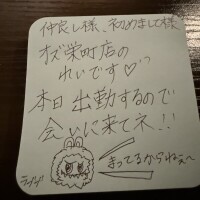 仲良し様、初めまして様
オズ栄町店の
れいです♡
本日出勤するので
会いに来てネ!!
まってるからねぇ〜